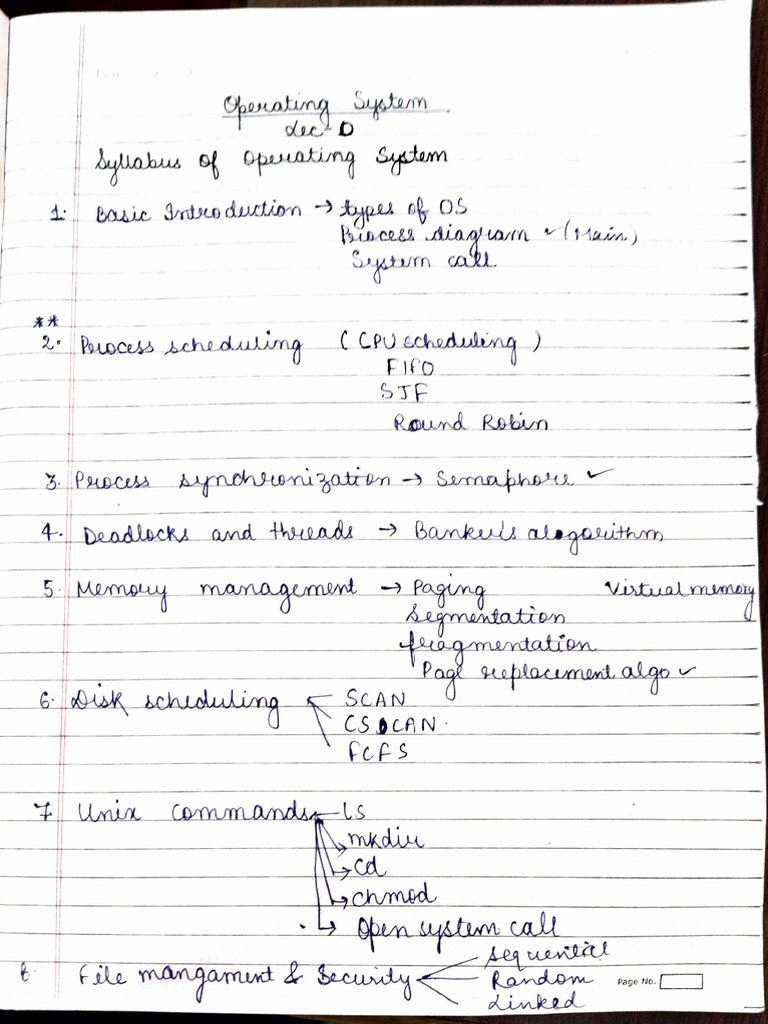 Operating System
Lec-0
Syllabus of Operating System
1. Basic Introduction → types of OS
Process diagram ✓ (Main)
System call
**
2. Process scheduling (CPU scheduling)
FIFO
SJF
Round Robin
3. Process synchronization → Semaphore ✓
4. Deadlocks and threads → Banker's algorithm
5. Memory management → Paging Virtual memory
Segmentation
fragmentation
Page replacement algo ✓
6. Disk scheduling SCAN
CSCAN
FCFS
7. Unix commands LS
mkdir
Cd
chmod
Open system call
8. File mangament & Security Sequential
Random Page No.
Linked